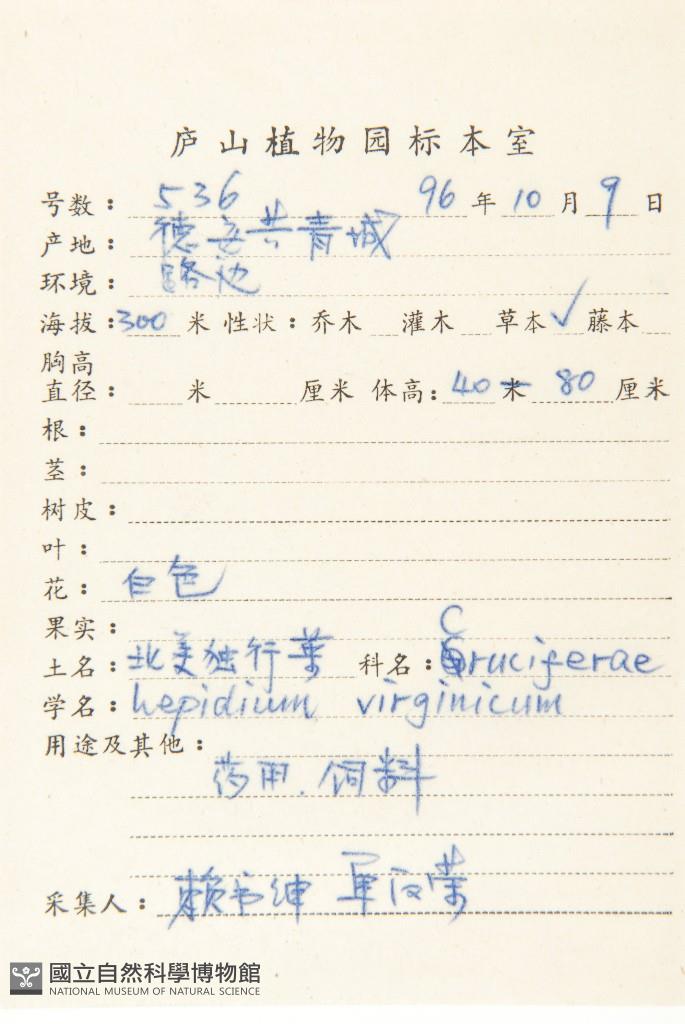 庐山植物园标本室
号数：536 96年10月9日
产地：德安共青城
环境：路边
海拔：300米 性状：乔木 灌木 草本✓藤本
胸高
直径： 米 厘米 体高：40米 80厘米
根：
茎：
树皮：
叶：
花：白色
果实：
土名：北美独行菜 科名：Cruciferae
学名：Lepidium virginicum
用途及其他：
药用．饲料
采集人：赖书绅
國立自然科學博物館
NATIONAL MUSEUM OF NATURAL SCIENCE